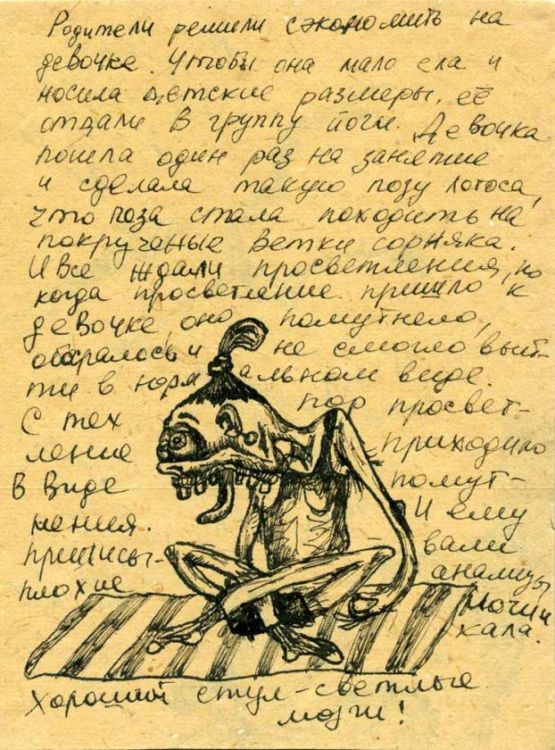 Родители решили сэкономить на
девочке. Чтобы она мало ела и
носила детские размеры, её
отдали в группу йоги. Девочка
пошла один раз на занятие
и сделала такую позу лотоса,
что поза стала походить на
покрученые ветки сорняка.
И все ждали просветления, но
когда просветление пришло к
девочке, оно помутнело,
обхралось и не смогло вый-
ти в нормальном виде.
С тех пор просвет-
ление приходило
в виде помут-
нения. И ему
приписы- вали
плохие анализы
мочи и
кала.
Хороший стул - светлые
мозги!